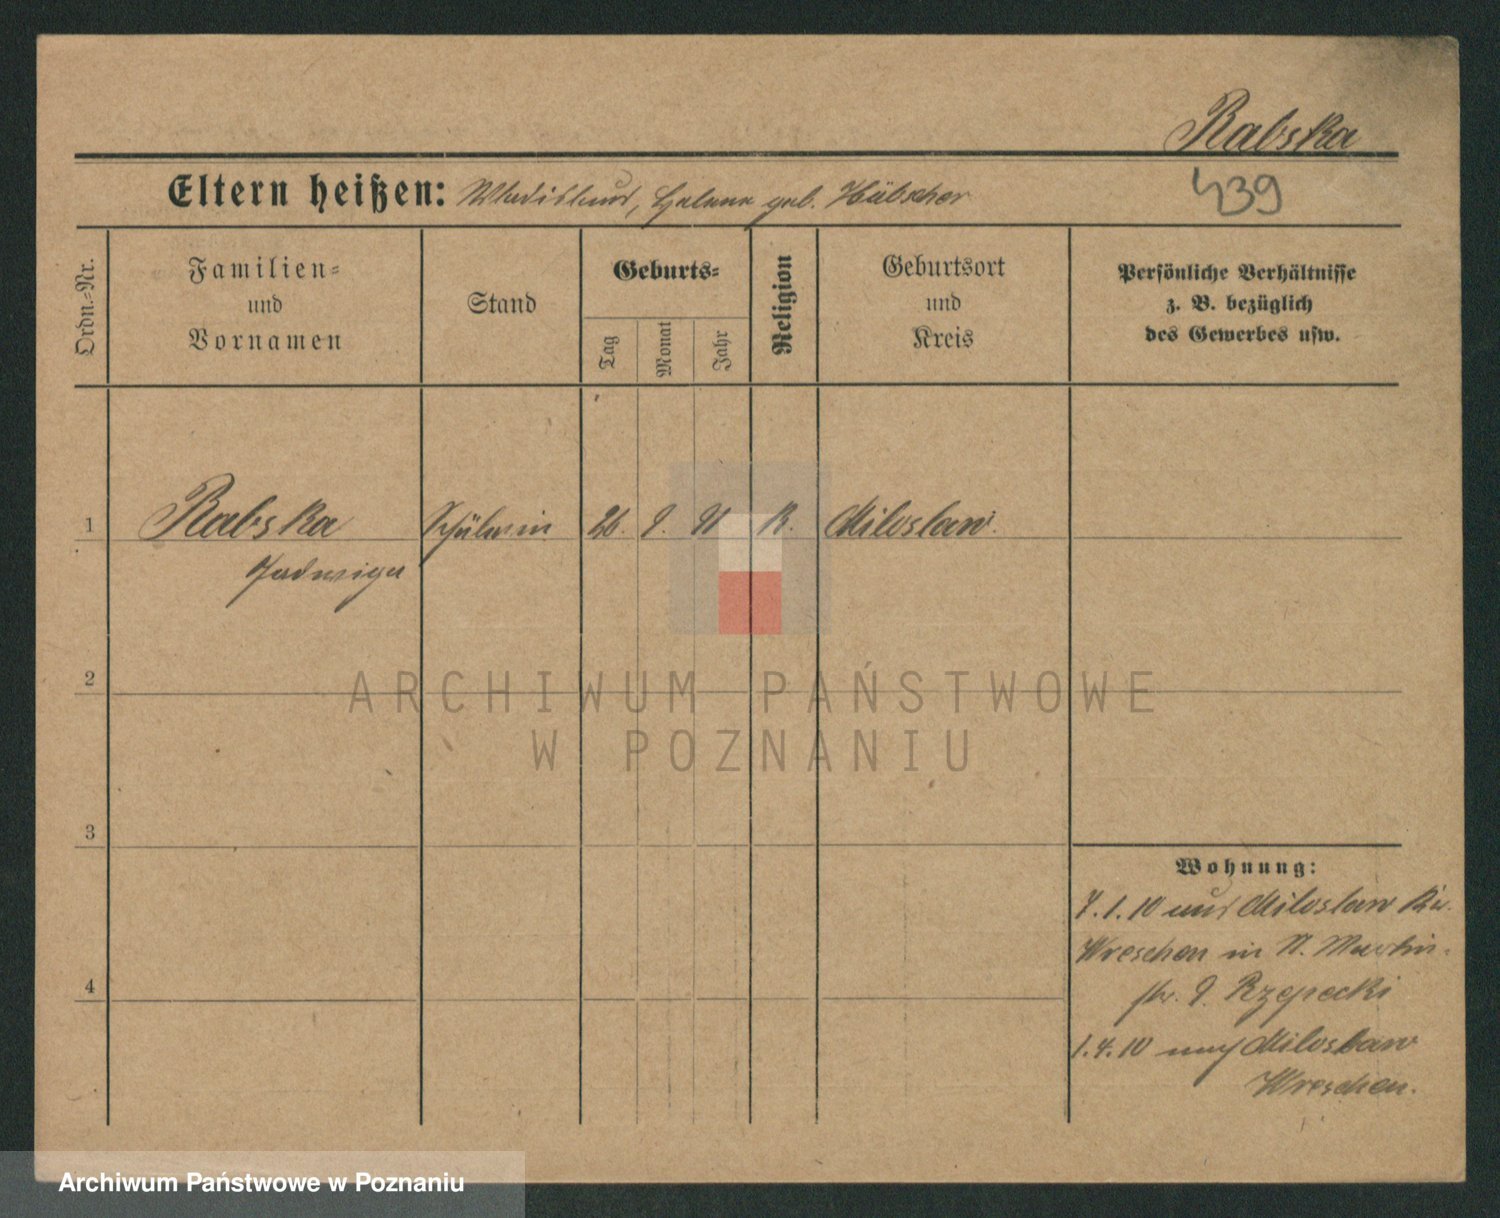 Rabska
Eltern heißen: Wladislaus, Helene geb. Hübscher
439
Ordn.-Nr.
Familien-
und
Vornamen
Stand
Geburts-
Tag
Monat
Jahr
Religion
Geburtsort
und
Kreis
Persönliche Verhältnisse
z. B. bezüglich
des Gewerbes usw.
1 Rabska Schülerin 26. 9. K. Miloslaw.
Jadwiga
2
3
4
Wohnung:
7.1.10 aus Miloslaw Kr.
Wreschen in St. Martin-
str. 9. Rzepecki
1.4.10 nach Miloslaw
Wreschen.
ARCHIWUM PAŃSTWOWE
W POZNANIU
Archiwum Państwowe w Poznaniu